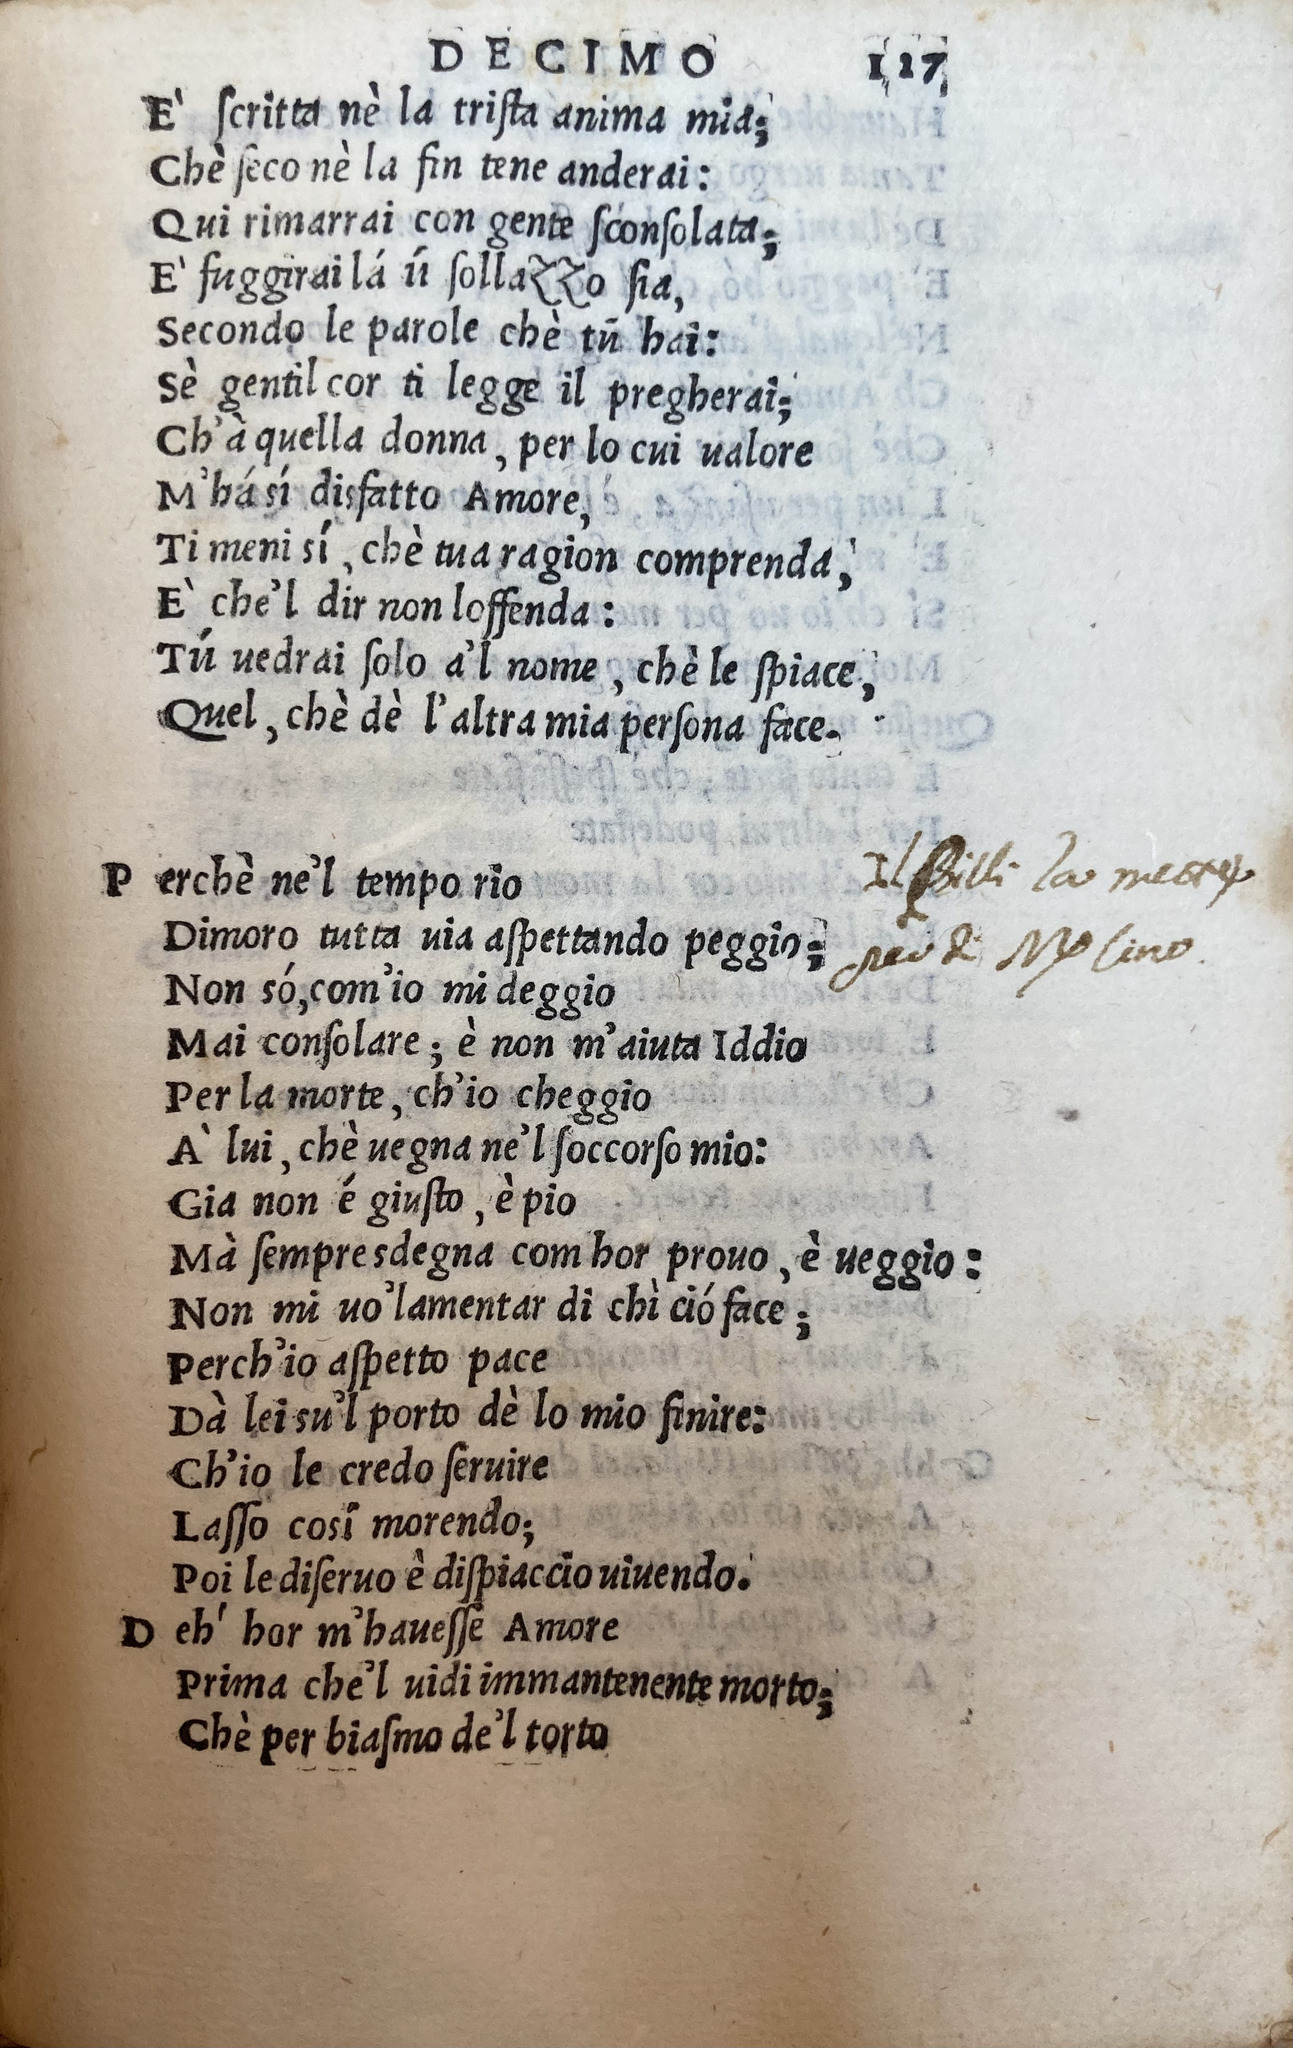 DECIMO 127
E' ſcritta nè la triſta anima mia;
Chè ſeco nè la fin tene anderai:
Qui rimarrai con gente ſconſolata;
E' fuggirai lá ú ſollazzo ſia,
Secondo le parole chè tú hai:
Sè gentil cor ti legge il pregherai;
Ch'à quella donna, per lo cui ualore
M'há sí disfatto Amore,
Ti meni sí, chè tua ragion comprenda,
E' che'l dir non loffenda:
Tú uedrai ſolo a'l nome, chè le ſpiace,
Quel, chè dè l'altra mia perſona face.
Perchè ne'l tempo rio
Il Billi la mette
Dimoro tutta uia aſpettando peggio;
Non só, com'io mi deggio
Mai conſolare; è non m'aiuta Iddio
Per la morte, ch'io cheggio
A' lui, chè uegna ne'l ſoccorſo mio:
Gia non é giuſto, è pio
Mà ſempre sdegna com hor prouo, è ueggio:
Non mi uo'lamentar di chì ció face;
Perch'io aſpetto pace
Dà lei su'l porto dè lo mio finire:
Ch'io le credo ſeruire
Laſſo cosí morendo;
Poi le diſeruo è diſpiaccio uiuendo.
Deh' hor m'haueſſe Amore
Prima che'l uidi immantenente morto;
Chè per biaſmo de'l torto